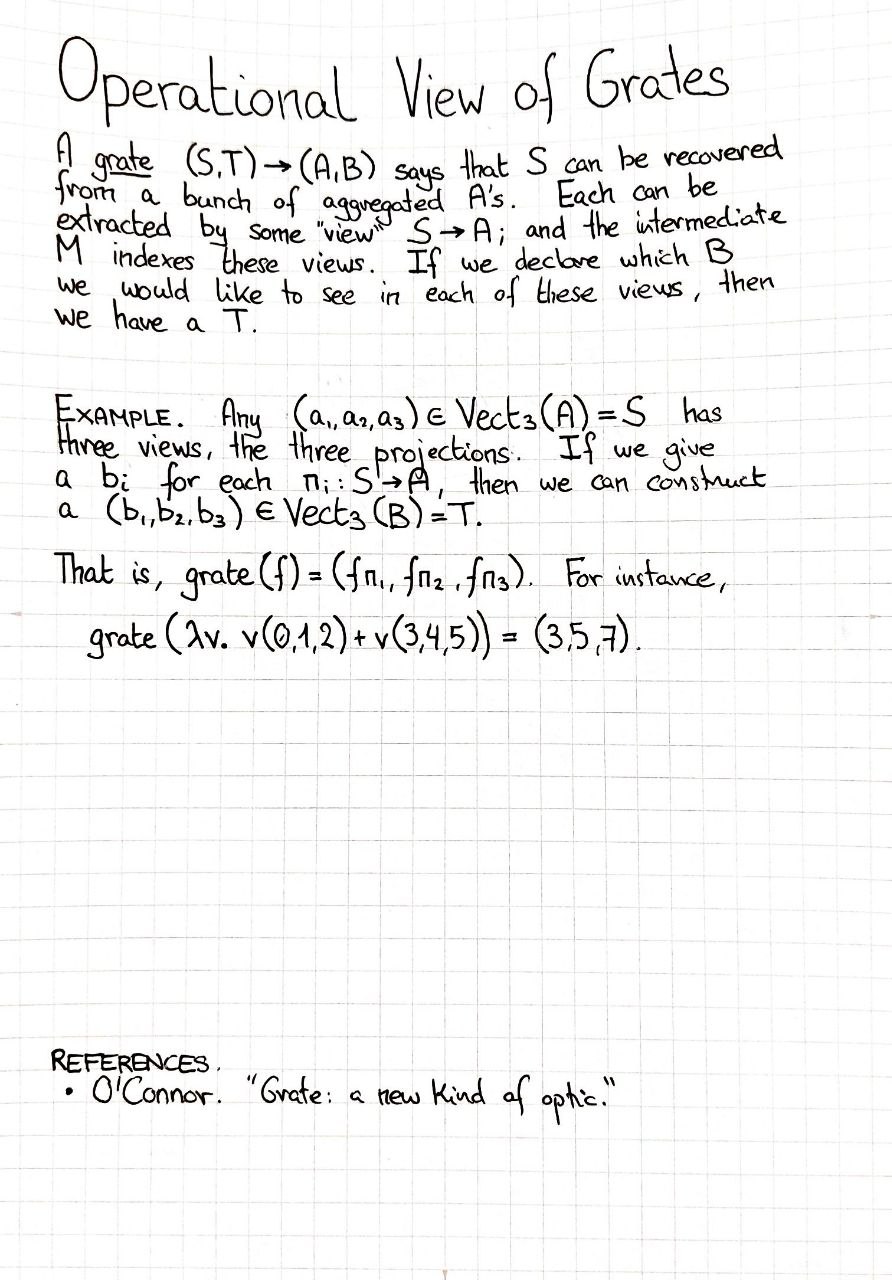 Operational View of Grates
A grate (S,T) → (A,B) says that S can be recovered
from a bunch of aggregated A's. Each can be
extracted by some "view" S → A; and the intermediate
M indexes these views. If we declare which B
we would like to see in each of these views, then
we have a T.
EXAMPLE. Any (a₁,a₂,a₃) ∈ Vect₃(A) = S has
three views, the three projections. If we give
a bᵢ for each πᵢ: S → A, then we can construct
a (b₁,b₂,b₃) ∈ Vect₃(B) = T.
That is, grate(f) = (fπ₁, fπ₂, fπ₃). For instance,
grate(λv. v(0,1,2) + v(3,4,5)) = (3,5,7).
REFERENCES.
• O'Connor. "Grate: a new kind of optic."